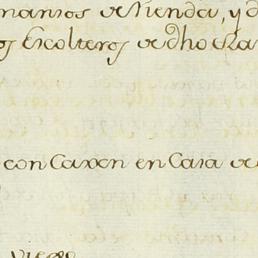 mantos de tienda, y d
os Escolteros de dho Ra
con Caxon en Casa de
viejo